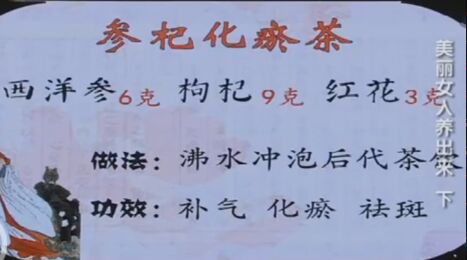 参杞化瘀茶
西洋参6克 枸杞9克 红花3克
做法：沸水冲泡后代茶饮
功效：补气 化瘀 祛斑
美丽女人养出来 下